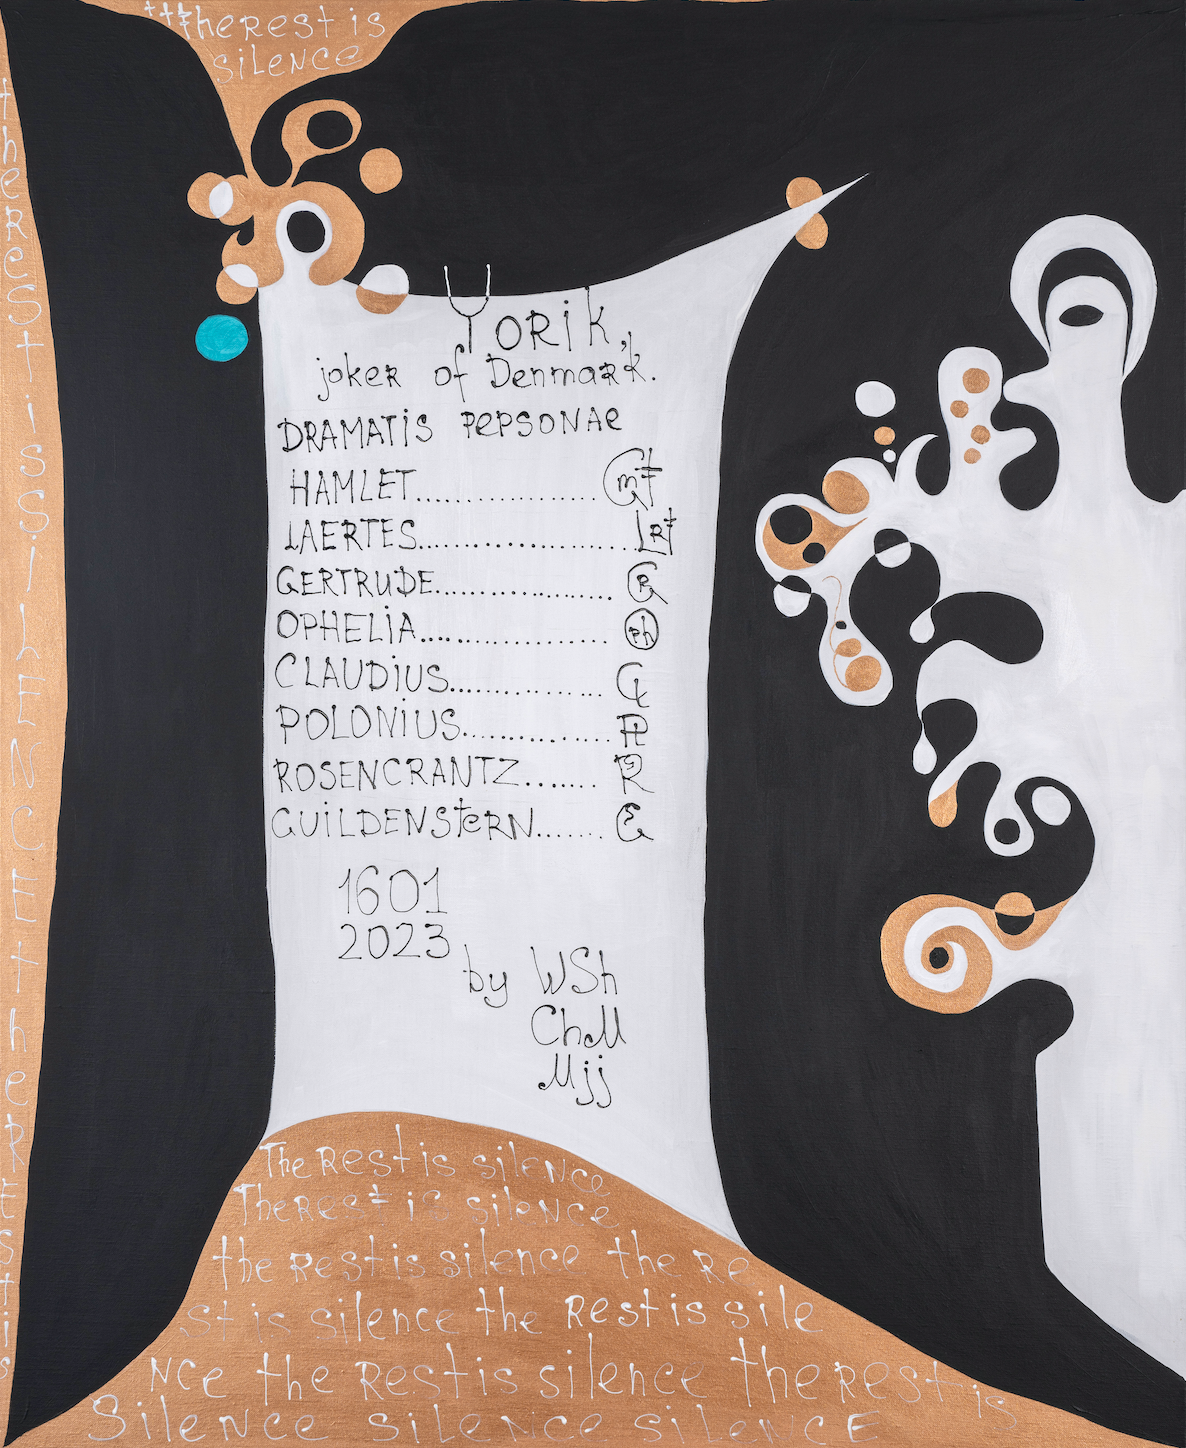 the rest is
silence
the Rest is silence the Rest is
Yorik,
joker of Denmark.
DRAMATIS PEPSONAE
HAMLET..................
LAERTES......................
GERTRUDE..................
OPHELIA...................
CLAUDIUS................
POLONIUS...............
ROSENCRANTZ.......
GUILDENStERN.......
1601
2023
by WSh
ChM
Mjj
The Rest is silence
The Rest is silence
the Rest is silence the Re
st is silence the Rest is sile
nce the Rest is silence the Rest is
Silence silence silence